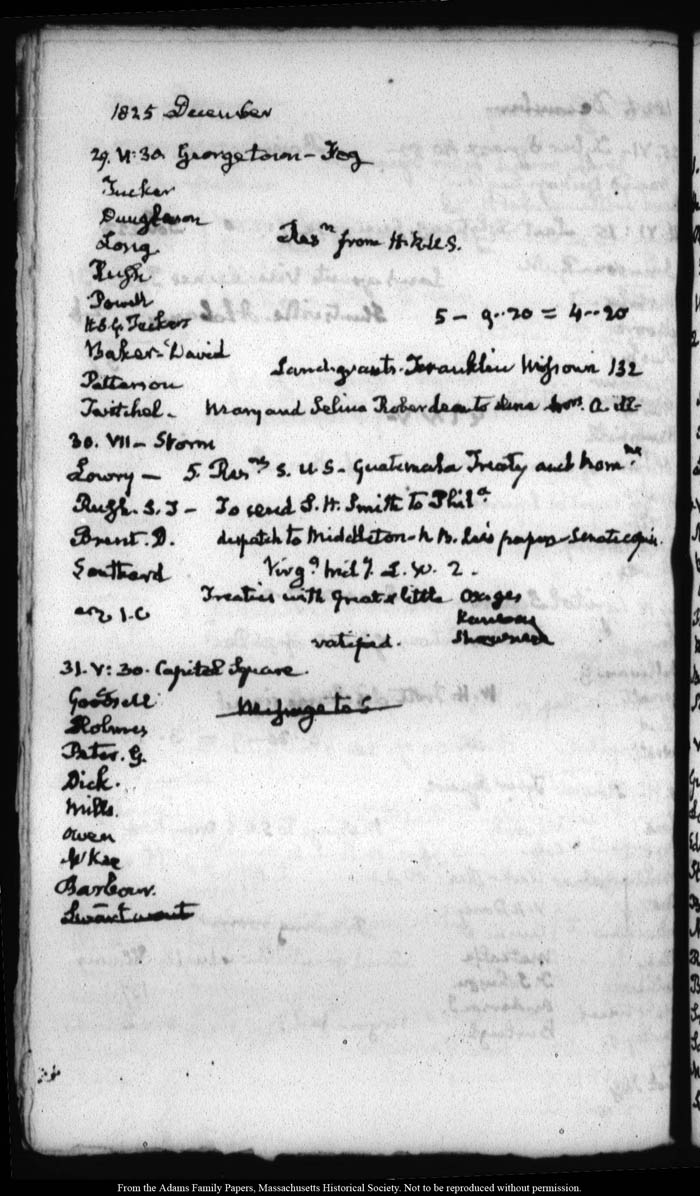 1825 December
29. V:30. Georgetown – Fog
Tucker
Dunglison
Long
Resn from H.R.U.S.
Rush
Powell
H. S. G. Tucker
5 – 9..20 = 4..20
Baker. David
Patterson
Land-grants. Franklin Missouri 132
Twitchel – Mary and Selina Roberdeau to dine Mrs. A. ill –
30. VII – Storm
Lowry – 5. Resns S. U S – Guatemala Treaty and Nomns
Rush. S. I – To send S. H. Smith to Phila
Brent. D. dispatch to Middleton – papers – Senate copies.
Southard Virga Mily. L. W. 2.
Treaties with great & little Osages
Kansas
Shawnees
ratified.
31. V:30. Capitol Square.
Goodsell
Message to S
Holmes
Peter. G.
Dick.
Mills.
Owen
McKee
Barbour.
Swartwout